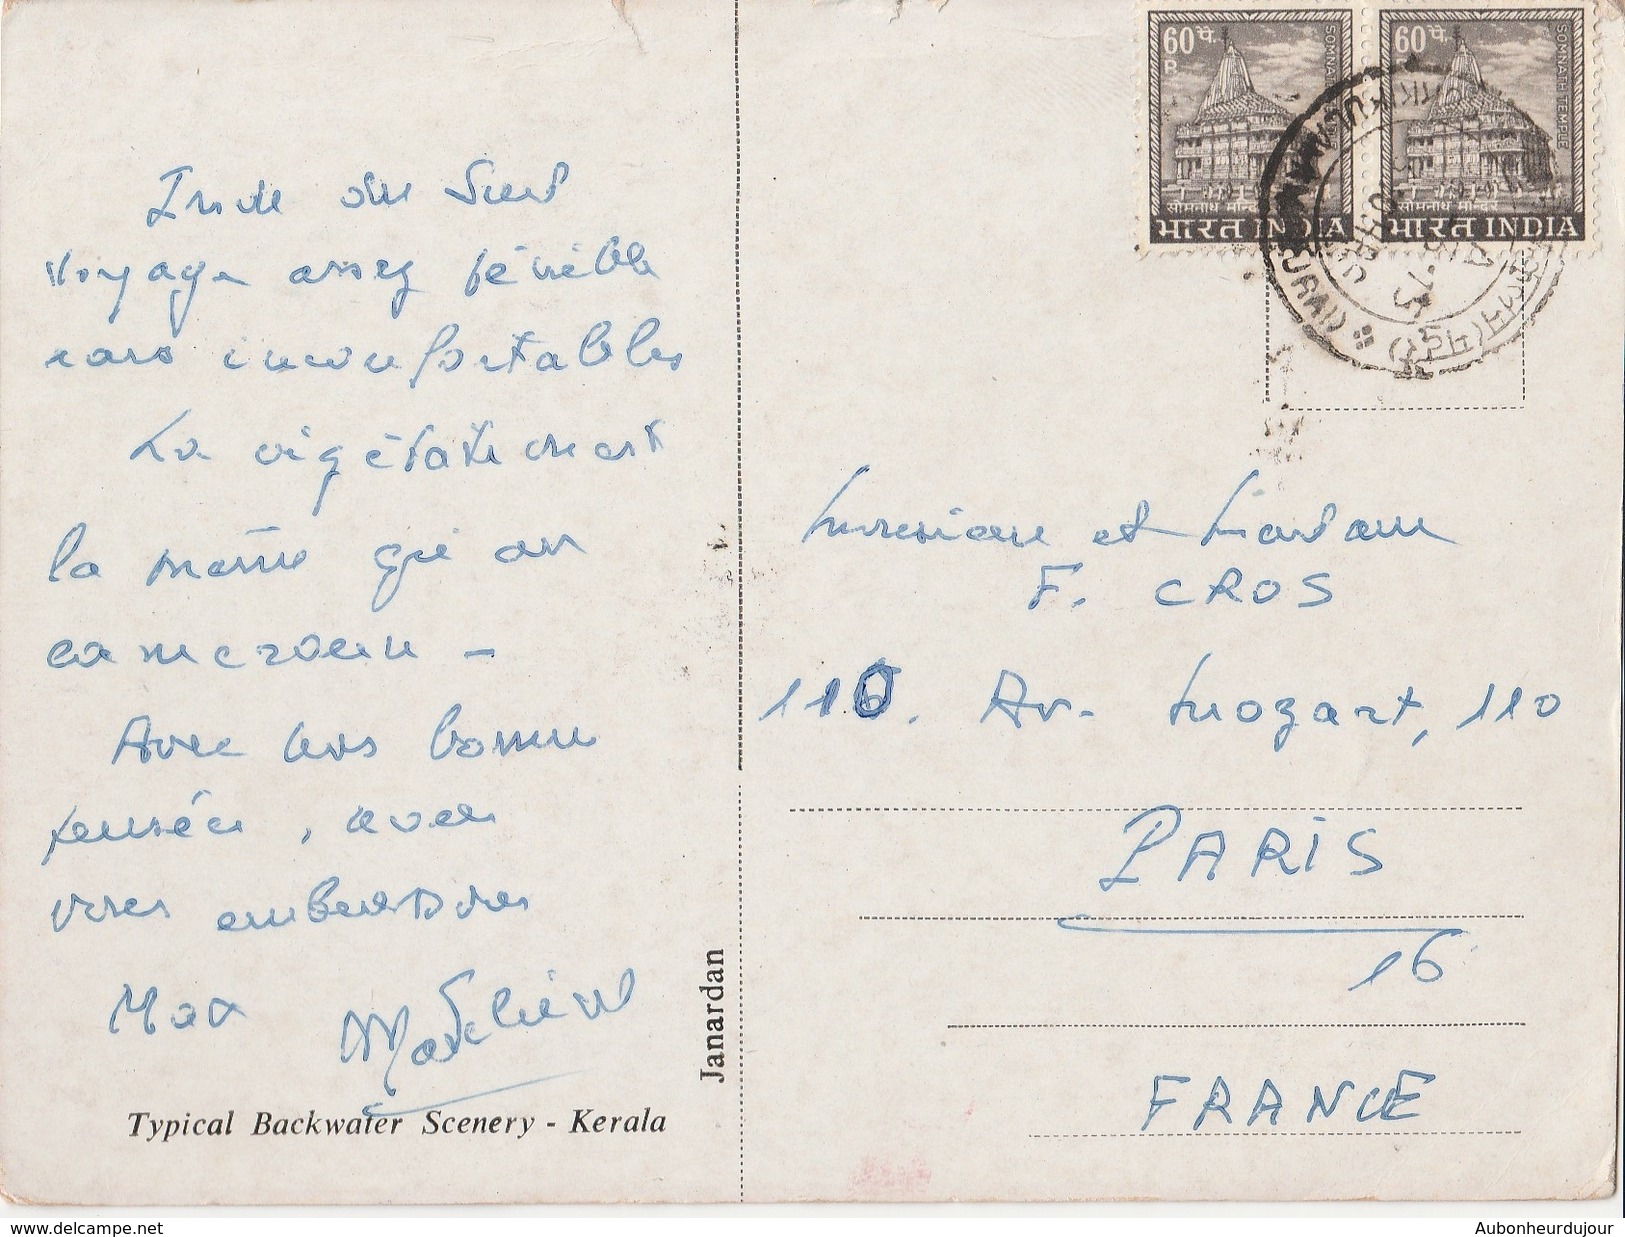 Inde du Sud
Voyage assez pénible
cars inconfortables
La végétation est
la même qu'au
cameroun -
Avec nos bonnes
pensées, avec
nos
Max
Typical Backwater Scenery - Kerala
Janardan
60 पै.
P
SOMNATH TEMPLE
सोमनाथ मन्दिर
भारत INDIA
60 पै.
SOMNATH TEMPLE
सोमनाथ मन्दिर
भारत INDIA
Monsieur et Madame
F. CROS
110. Av. Mozart, 110
PARIS
16
FRANCE
www.delcampe.net
Aubonheurdujour